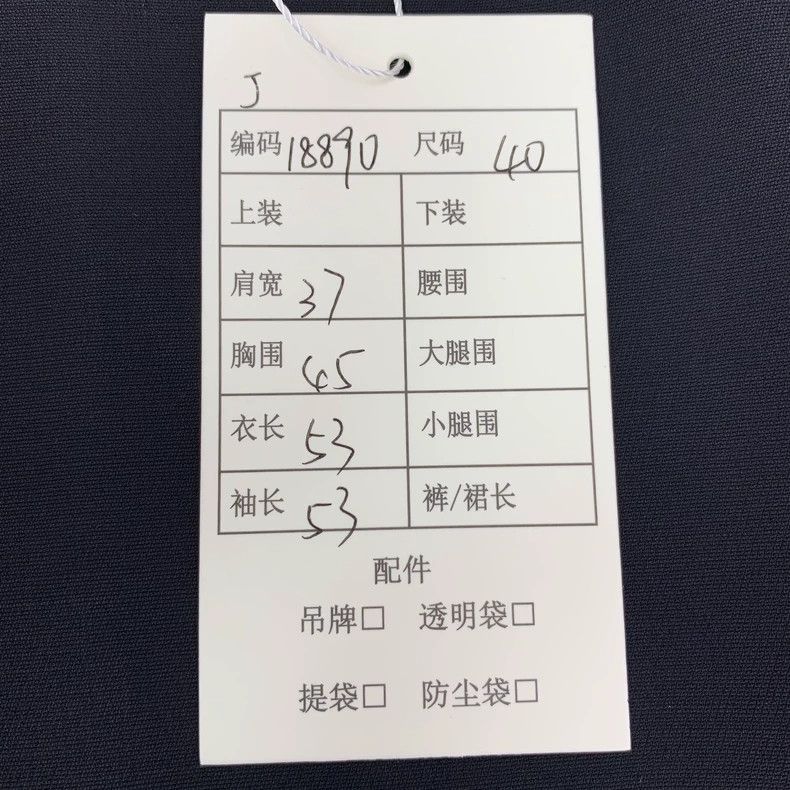 J
编码 18890 尺码 40
上装 下装
肩宽 37 腰围
胸围 45 大腿围
衣长 53 小腿围
袖长 53 裤/裙长
配件
吊牌□ 透明袋□
提袋□ 防尘袋□